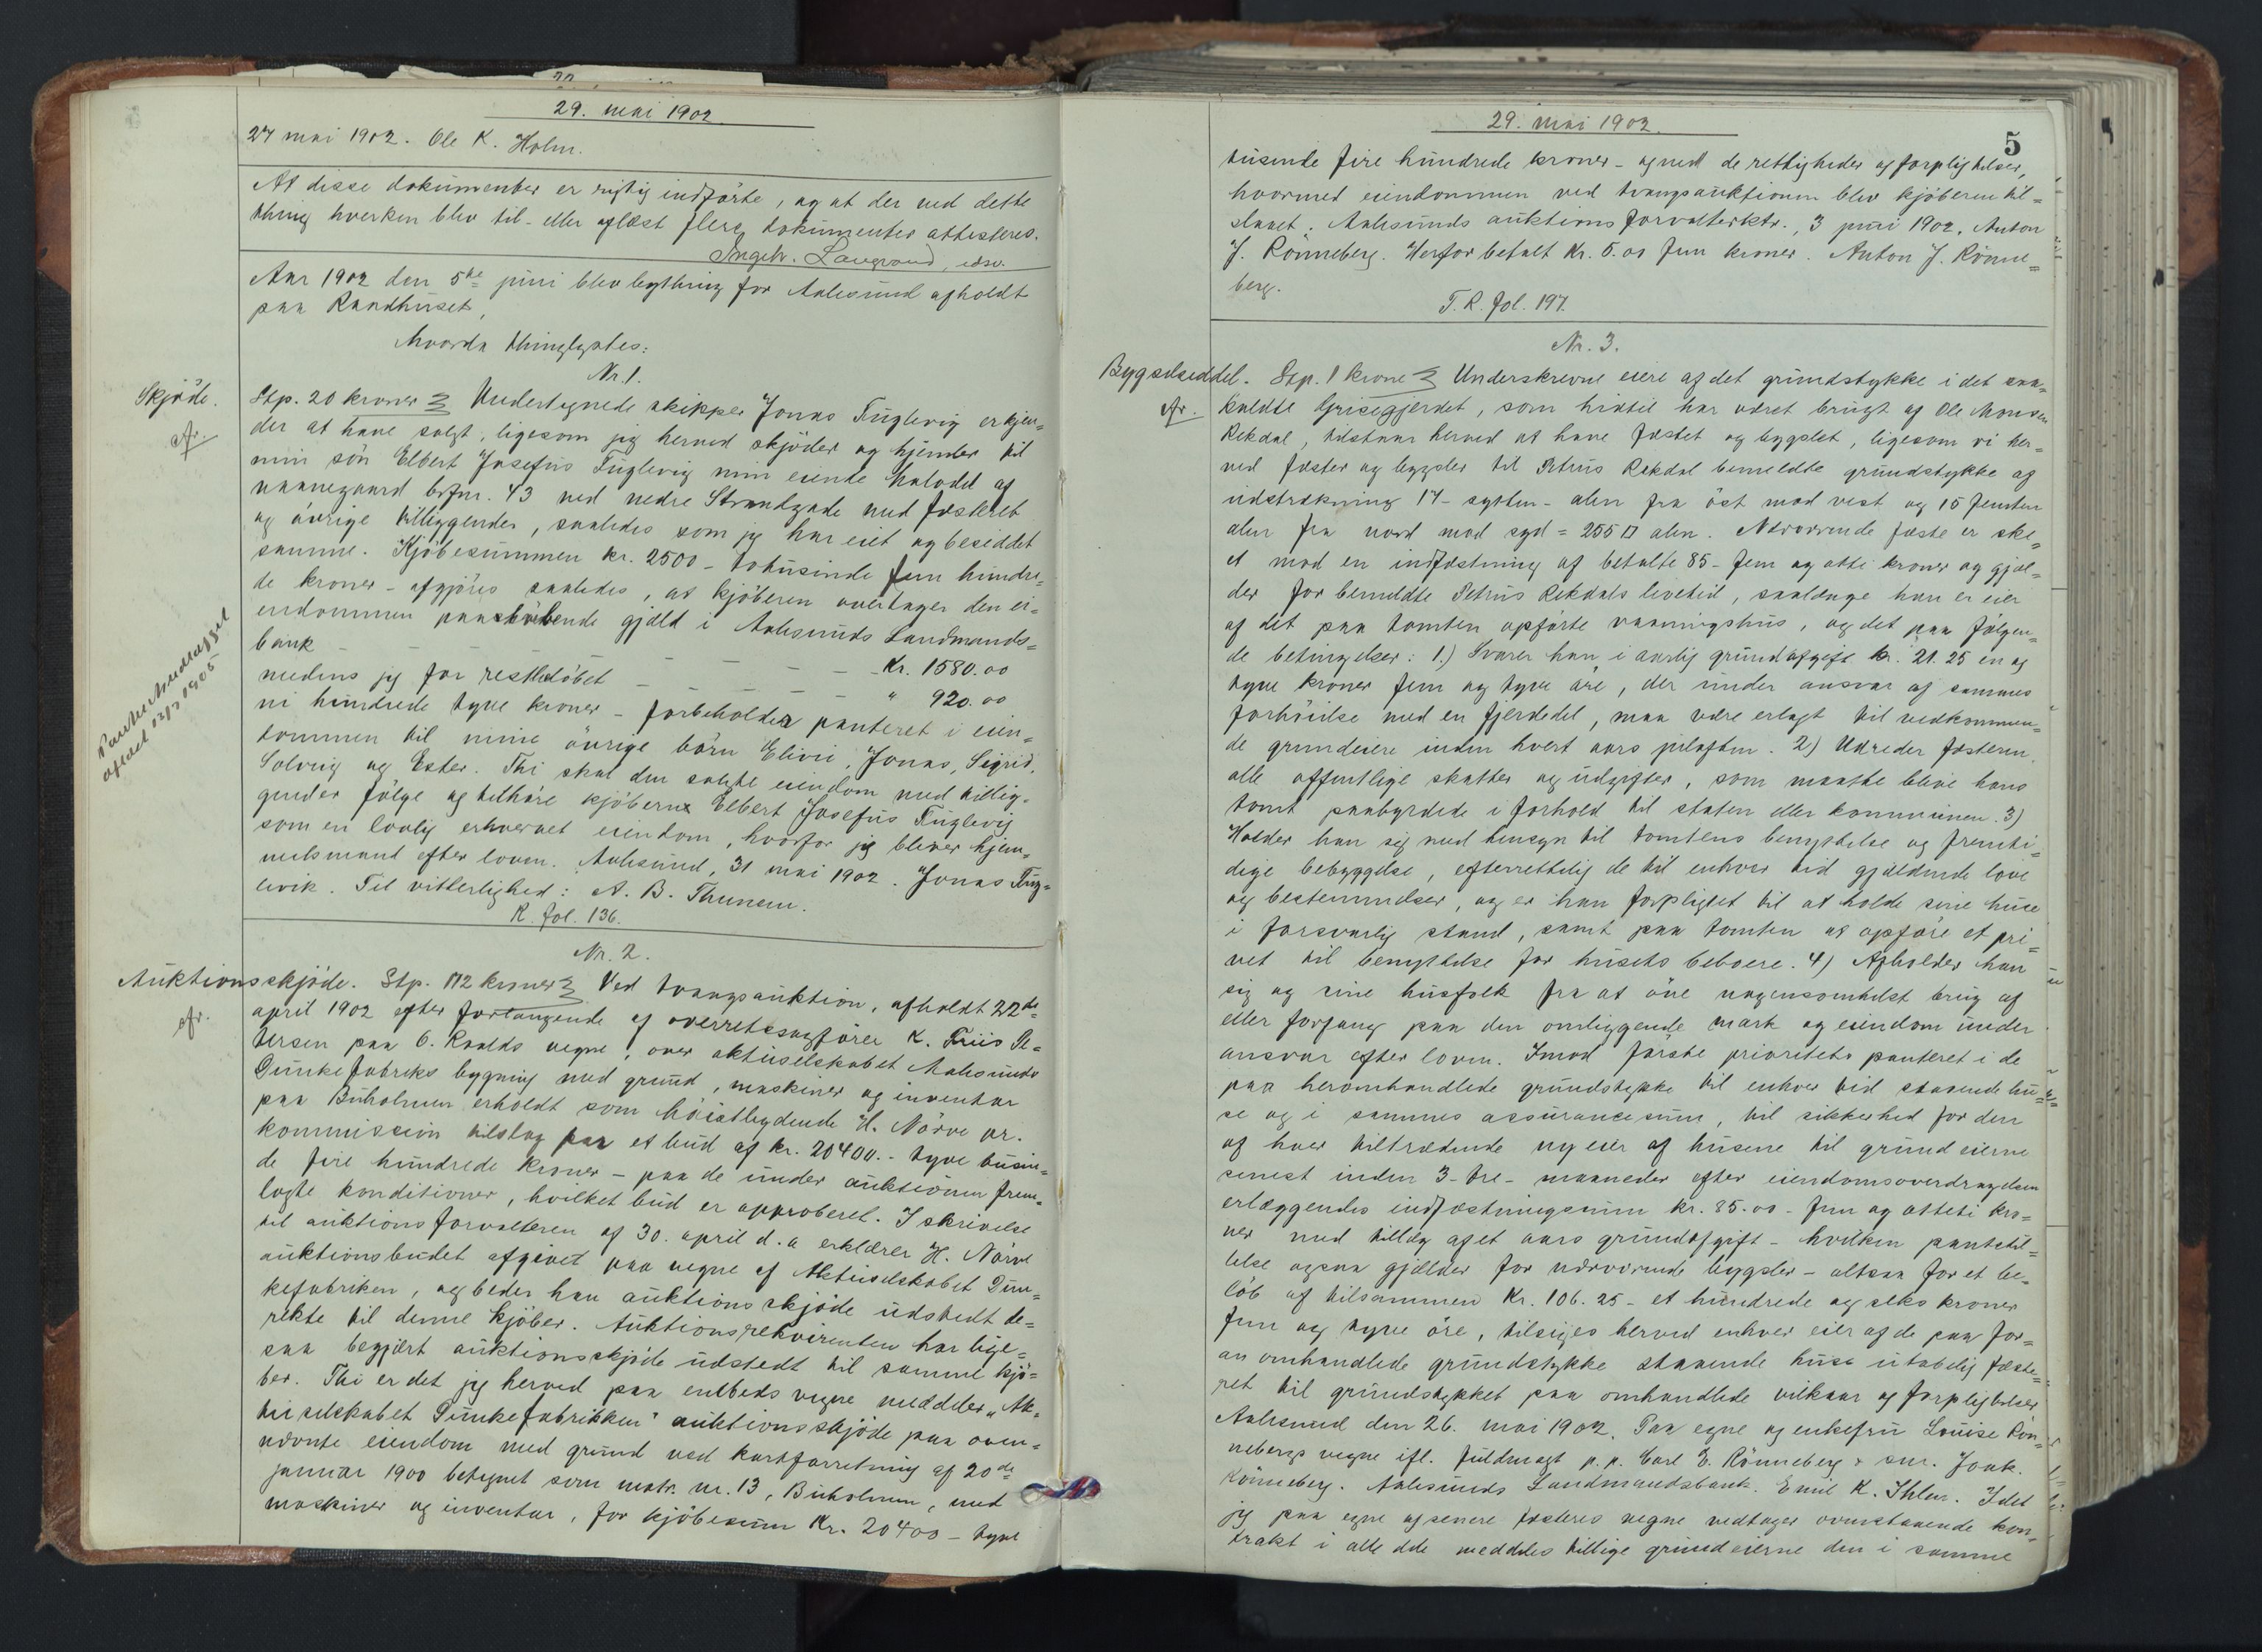 29. mai 1902
27 mai 1902. Ole K. Holm.
At disse dokumenter er rigtig indførte, og at der ved dette
thing hverken blev til- eller aflæst flere dokumenter attesteres.
Ingebr. Langrand, edsv.
Aar 1902 den 5te juni blev bything for Aalesund afholdt
paa Raadhuset,
hvorda thinglystes:
Nr. 1.
Skjøde.
afr.
Stp. 20 kroner Undertegnede skipper Jonas Fuglevig erkjen=
der at have solgt, ligesom jeg herved skjøder og hjemler til
min søn Elbert Josefus Fuglevig min eiende halvdel af
vaanegaard brfnr. 43 ved nedre Strandgade med fæsteret
og øvrige tilliggender, saaledes som jeg har eiet og besiddet
samme. Kjøbesummen kr. 2500 - totusinde fem hundre=
de kroner - afgjøres saaledes, at kjøberen overtager den ei=
endommen paahvilende gjæld i Aalesunds Landmands=
bank - - - - - - Kr. 1580.00
medens jeg for restbeløbet - - - - " 920.00
ni hundrede tyve kroner - forbeholder panteret i eien=
dommen til mine øvrige børn Elivii, Jonas, Sigrid,
Solveig og Ester. Thi skal den solgte eiendom med tillig=
gender følge og tilhøre kjøberen Elbert Josefus Fuglevig
som en lovlig erhvervet eiendom, hvorfor jeg bliver hjem=
melsmand efter loven. Aalesund, 31 mai 1902. Jonas Fug=
levik. Til vitterlighed: A. B. Thunem.
R. fol. 136.
aflæst 12/7 1905
Nr. 2.
Auktionsskjøde. Stp. 112 kroner Ved tvangsauktion, afholdt 22de
afr.
april 1902 efter forlangende af overretssagfører K. Friis Pe=
tersen paa C. Raalds vegne, over aktieselskabet Aalesunds
Dunkefabriks bygning med grund, maskiner og inventar
paa Buholmen erholdt som høistbydende H. Nørve pr.
kommission tilslag paa et bud af kr. 20400.- tyve tusin=
de fire hundrede kroner - paa de under auktionen frem=
lagte konditioner, hvilket bud er approberet. I skrivelse
til auktionsforvalteren af 30. april d.a. erklærer H. Nørve
auktionsbudet afgivet paa vegne af Aktieselskabet Dun=
kefabriken, og beder han auktionsskjøde udstedt di=
rekte til denne kjøber. Auktionsrekvirenten har lige=
saa begjært auktionsskjøde udstedt til samme kjø=
ber. Thi er det jeg herved paa embeds vegne meddeler "Ak=
tieselskabet Dunkefabrikken" auktionsskjøde paa oven=
nævnte eiendom med grund ved kartforretning af 20de
januar 1900 betegnet som matr. nr. 13, Buholmen, med
maskiner og inventar, for kjøbesum Kr. 20400 - tyve
29. mai 1902.
5
tusinde fire hundrede kroner - og med de rettigheder og forpligtelser,
hvormed eiendommen ved tvangsauktionen blev kjøberen til=
slaaet. Aalesunds auktionsforvalterktr., 3 juni 1902. Anton
J. Rönneberg. Herfor betalt Kr. 5.00 fem kroner. Anton J. Rönne=
berg.
T. R. fol. 197.
Nr. 3.
Bygselseddel. Stp. 1 krone Underskrevne eiere af det grundstykke i det saa=
afr.
kaldte Grisegjerdet, som hidtil har været brugt af Ole Monsen
Rekdal, tilstaar herved at have fæstet og bygslet, ligesom vi her=
ved fæster og bygsler til Petrus Rekdal bemeldte grundstykke af
udstrækning 17 - sytten - alen fra øst mod vest og 15 femten
alen fra nord mod syd = 255 □ alen. Nærværende fæste er ske=
et mod en indfæstning af betalte 85 - fem og otti kroner og gjæl=
der for bemeldte Petrus Rekdals levetid, saalænge han er eier
af det paa tomten opførte vaaningshus, og det paa følgen=
de betingelser: 1.) Svarer han i aarlig grundafgift kr. 21.25 en og
tyve kroner fem og tyve øre, der under ansvar af sammes
forhøielse med en fjerdedel, maa være erlagt til vedkommen=
de grundeiere inden hvert aars juleaften. 2) Udreder fæsteren
alle offentlige skatter og udgifter, som maatte blive hans
tomt paabyrdede i forhold til staten eller kommunen. 3)
Holder han sig med hensyn til tomtens benyttelse og fremti=
dige bebyggelse, efterrettelig de til enhver tid gjældende love
og bestemmelser, og er han forpligtet til at holde sine huse
i forsvarlig stand, samt paa tomten at opføre et pri=
vet til benyttelse for husets beboere. 4) Afholder han
sig og sine husfolk fra at øve nogensomhelst brug af
eller forfang paa den omliggende mark og eiendom under
ansvar efter loven. Imod første prioritets panteret i de
paa heromhandlede grundstykke til enhver tid staaende hu=
se og i sammes assurancesum, til sikkerhed for den
af hver tiltrædende ny eier af husene til grundeierne
senest inden 3 - tre - maaneder efter eiendomsoverdragelsen
erlæggendes indfæstningssum kr. 85.00 - fem og otteti kro=
ner med tillæg af et aars grundafgift - hvilken pantstil=
lelse ogsaa gjælder for nærværende bygsler - altsaa for et be=
løb af tilsammen Kr. 106.25 - et hundrede og seks kroner
fem og tyve øre, tilsiges herved enhver eier af de paa for=
an omhandlede grundstykke staaende huse utabelig fæste=
ret til grundstykket paa omhandlede vilkaar og forpligtelser
Aalesund den 26. mai 1902. Paa egne og enkefru Louise Rön=
nebergs vegne ifl. fuldmagt p. p. Carl E. Rönneberg & sm. Joak.
Rönneberg. Aalesunds Landmandsbank. Emil K. Ihlen. Idet
jeg paa egne og senere fæsteres vegne vedtager ovenstaaende kon=
trakt i alle dele meddeles tillige grundeierne den i samme